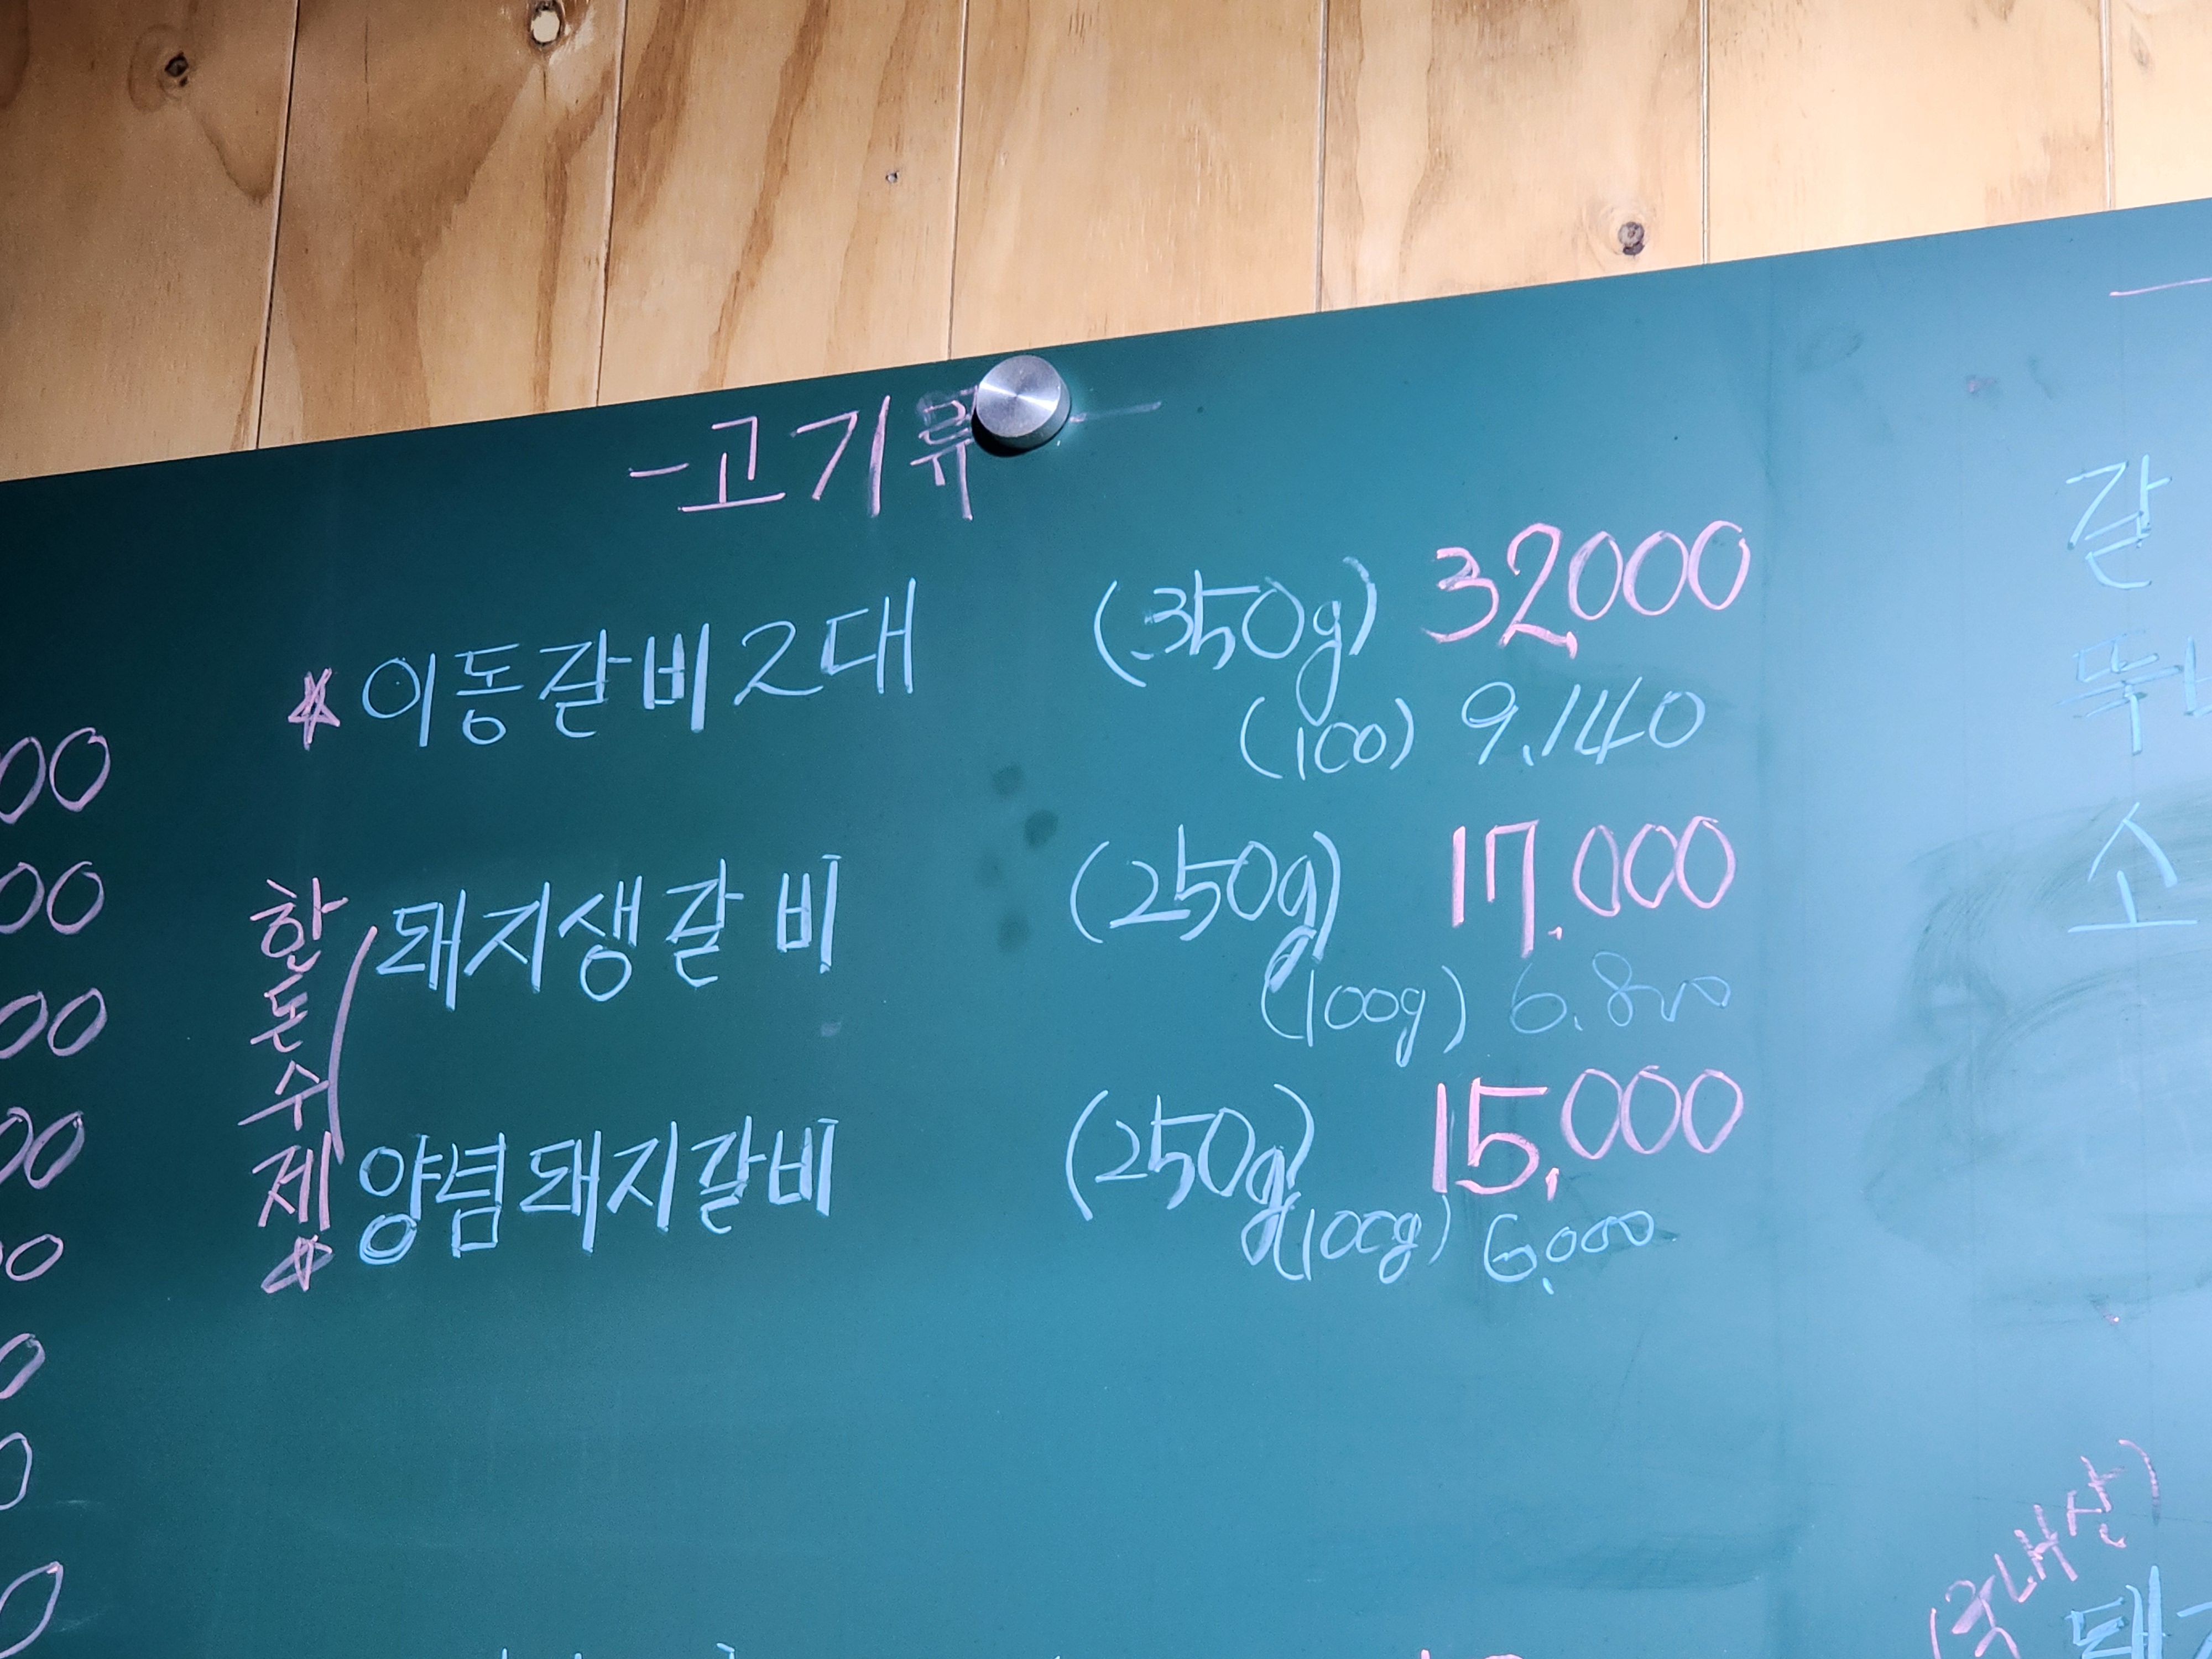 -고기류-
*이동갈비2대 (350g) 32,000
(100) 9,140
한돈수제
돼지생갈비 (250g) 17,000
(100g) 6,800
*양념돼지갈비 (250g) 15,000
(100g) 6,000
갈
뚝
소
(국내산)
돼
00
00
00
00
0
0
0
0